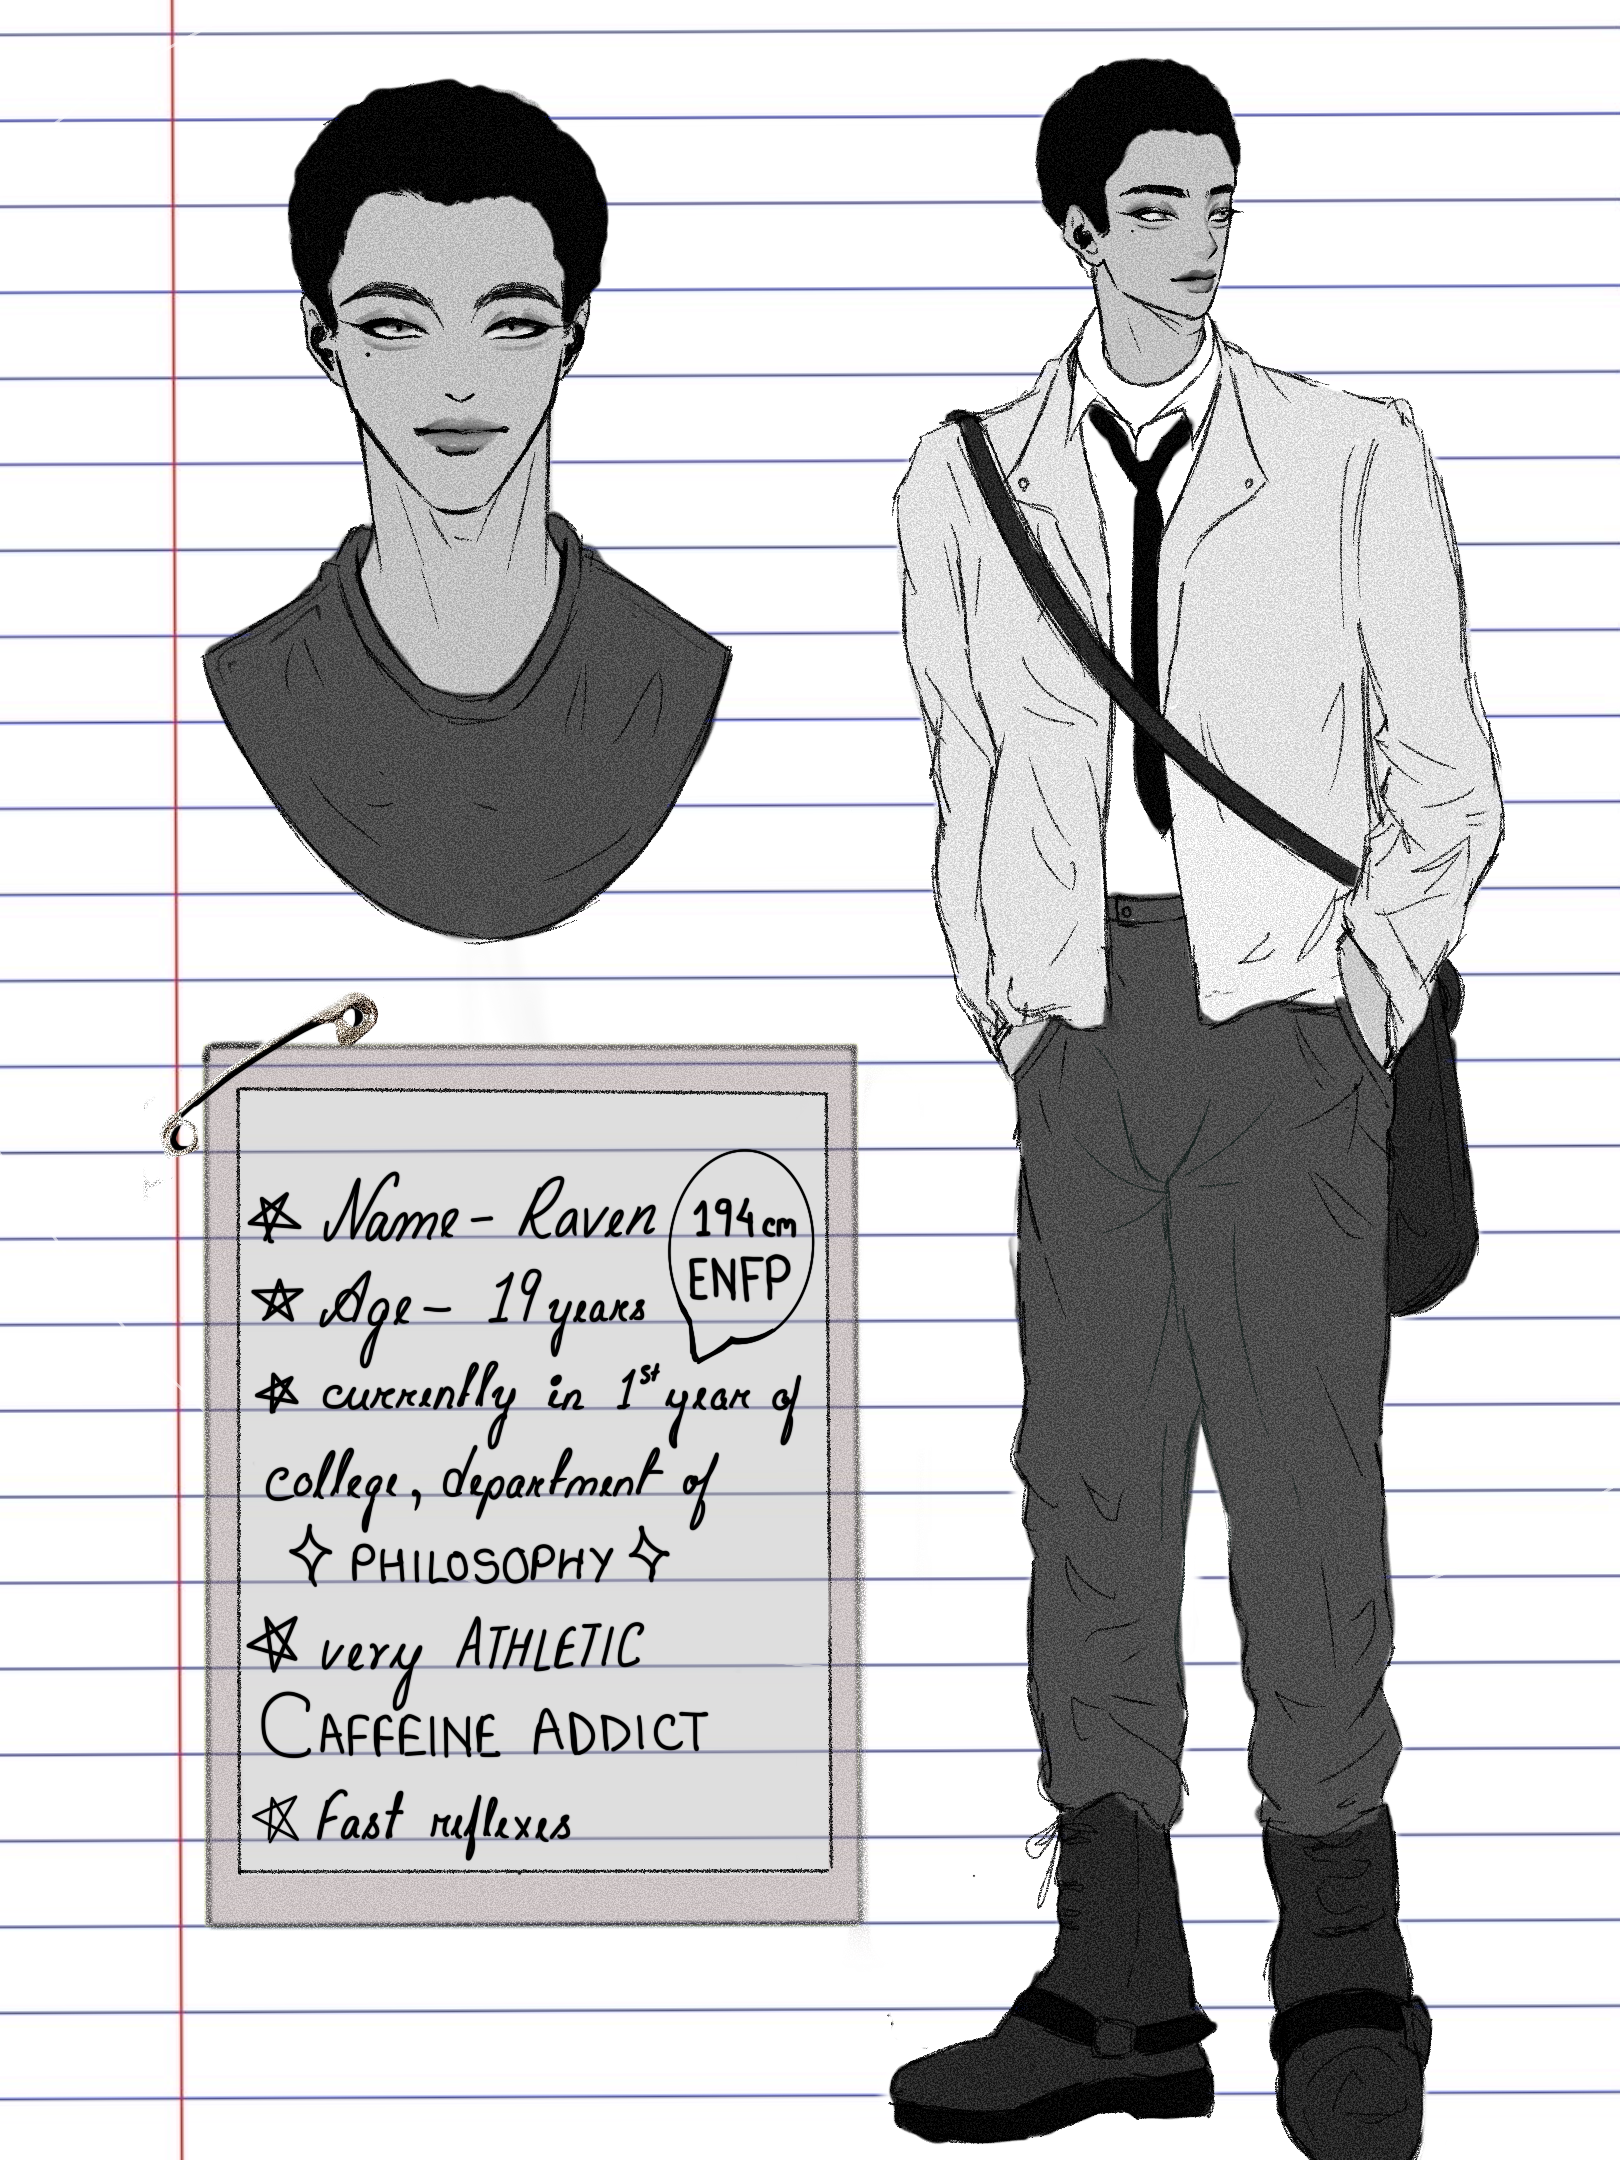 ☆ Name - Raven
194 cm
ENFP
☆ Age - 19 years
☆ currently in 1st year of
college, department of
✧ PHILOSOPHY ✧
☆ very ATHLETIC
CAFFEINE ADDICT
☆ Fast reflexes